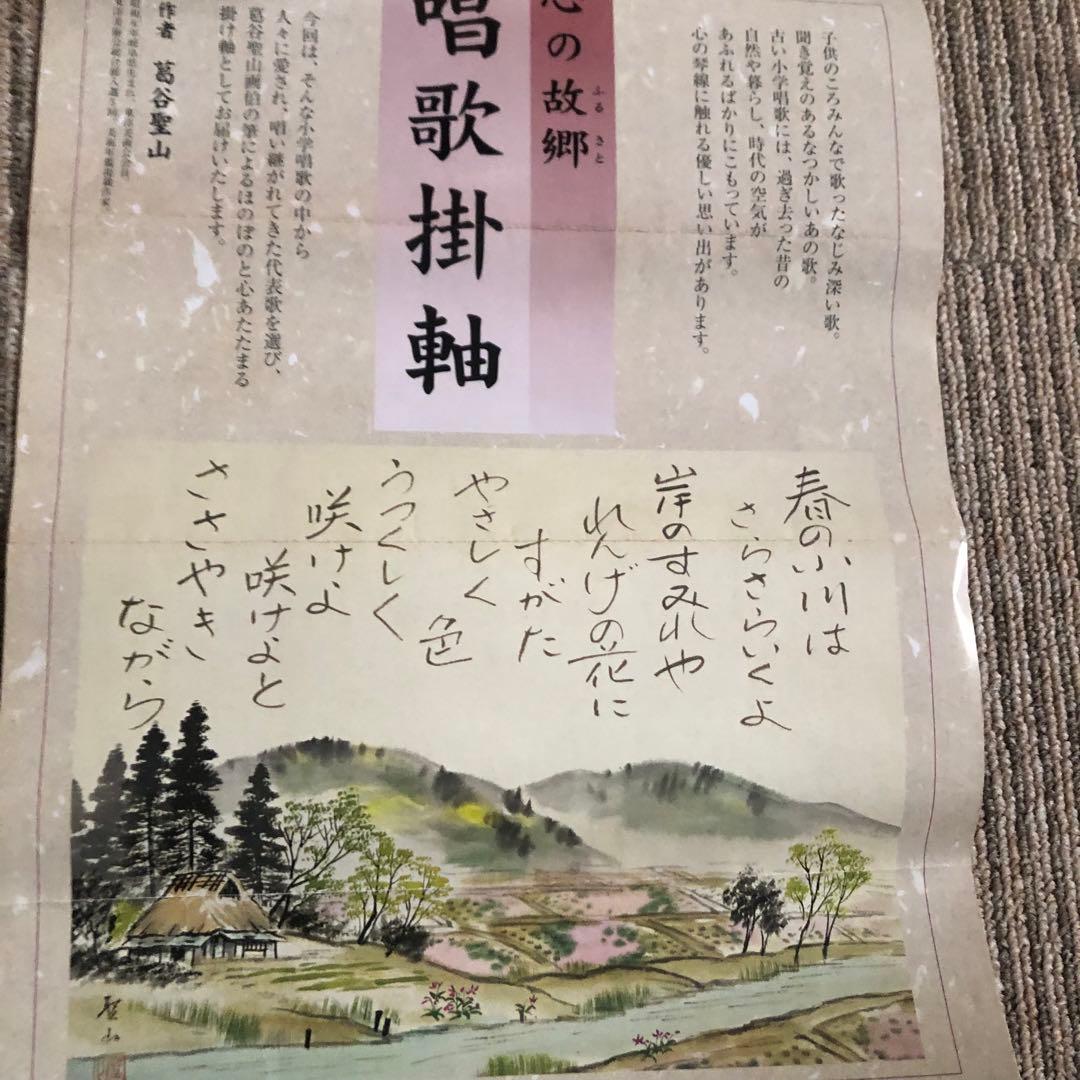 子供のころみんなで歌ったなじみ深い歌。
聞き覚えのあるなつかしいあの歌。
古い小学唱歌には、過ぎ去った昔の
自然や暮らし、時代の空気が
あふれるばかりにこもっています。
心の琴線に触れる優しい思い出があります。
心の故郷
ふるさと
唱歌掛軸
今回は、そんな小学唱歌の中から
人々に愛され、唱い継がれてきた代表歌を選び、
葛谷聖山画伯の筆によるほのぼのと心あたたまる
掛け軸としてお届けいたします。
作者 葛谷聖山
春の小川は
さらさらいくよ
岸のすみれや
れんげの花に
すがた
やさしく
色
うつくしく
咲けよ
咲けよと
ささやき
ながら
聖山